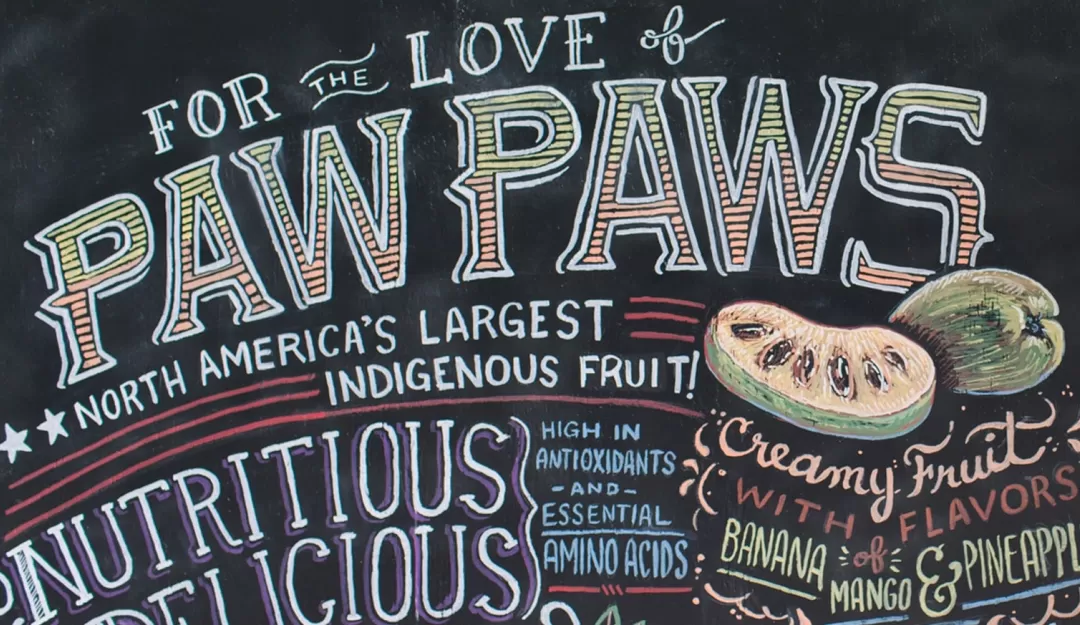 FOR THE LOVE of
PAW PAWS
NORTH AMERICA'S LARGEST
INDIGENOUS FRUIT!
NUTRITIOUS
DELICIOUS
HIGH IN
ANTIOXIDANTS
-AND-
ESSENTIAL
AMINO ACIDS
Creamy Fruit
WITH FLAVORS
of
BANANA
MANGO & PINEAPPL